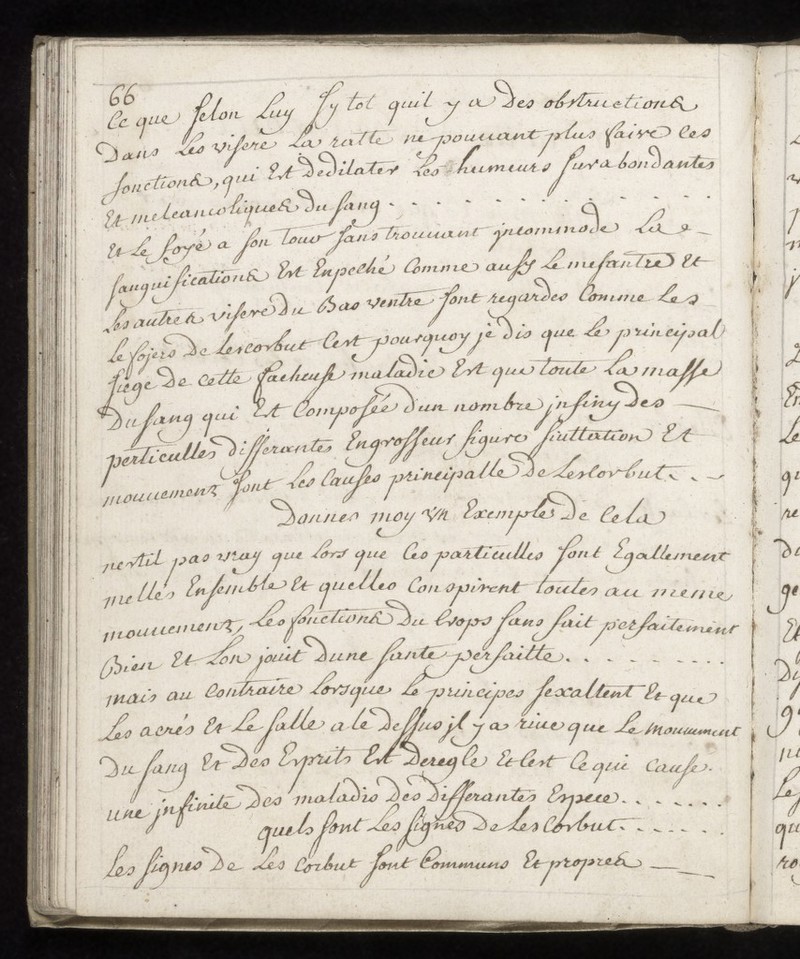 66
Ce que selon Luy sy tot quil y a Des obstructions
Dans Les visere La ratte ne pouuant plus faire Ces
fonctions, qui Est Dedilater Les humeurs surabondantes
Et melcancoliques Du sang - - - - - - - - -
Et Le foyé a son tour sans trouuant incommode La e-
sanguifications Est Enpeché Comme aussy Le mesantre Et
Les autres visere Du Bas ventre sont regardes Comme Les
Le fojers De Lescorbut Cest pourquoy je dis que Le principal
siege De cette facheuse maladie Est que toute La masse
Du sang qui Est Composée dun nombre jnfiny Des —
perticulles differantes Engrosseur figure situation Et
mouuement sont Les Causes principalle De Lescorbut. . -
Donner moy vn Exemple De Cela
nestil pas vray que Lors que Ces particulles sont Egallement
melles Ensemble Et quelles Conspirent toutes au meme
mouuement, Les fonctions Du Corps sans fait perfaitement
Bien Et Lon jouit Dune sante perfaitte. . - - - - - . . . .
mais au Contraire Lorsque Le principes sexaltent Et que
Les acrés Et Le salle a le Dessus jl y a rive que Le mouuement
Du sang Et Des Esprits Est Deregle Et Cest Ce qui cause.
une jnfinite Des maladis Des Differantes Espece. . . - . . .
quels sont Les signes De Les Corbut. - - - - . .
Les signes De Les Corbut sont Communs Et propres — —